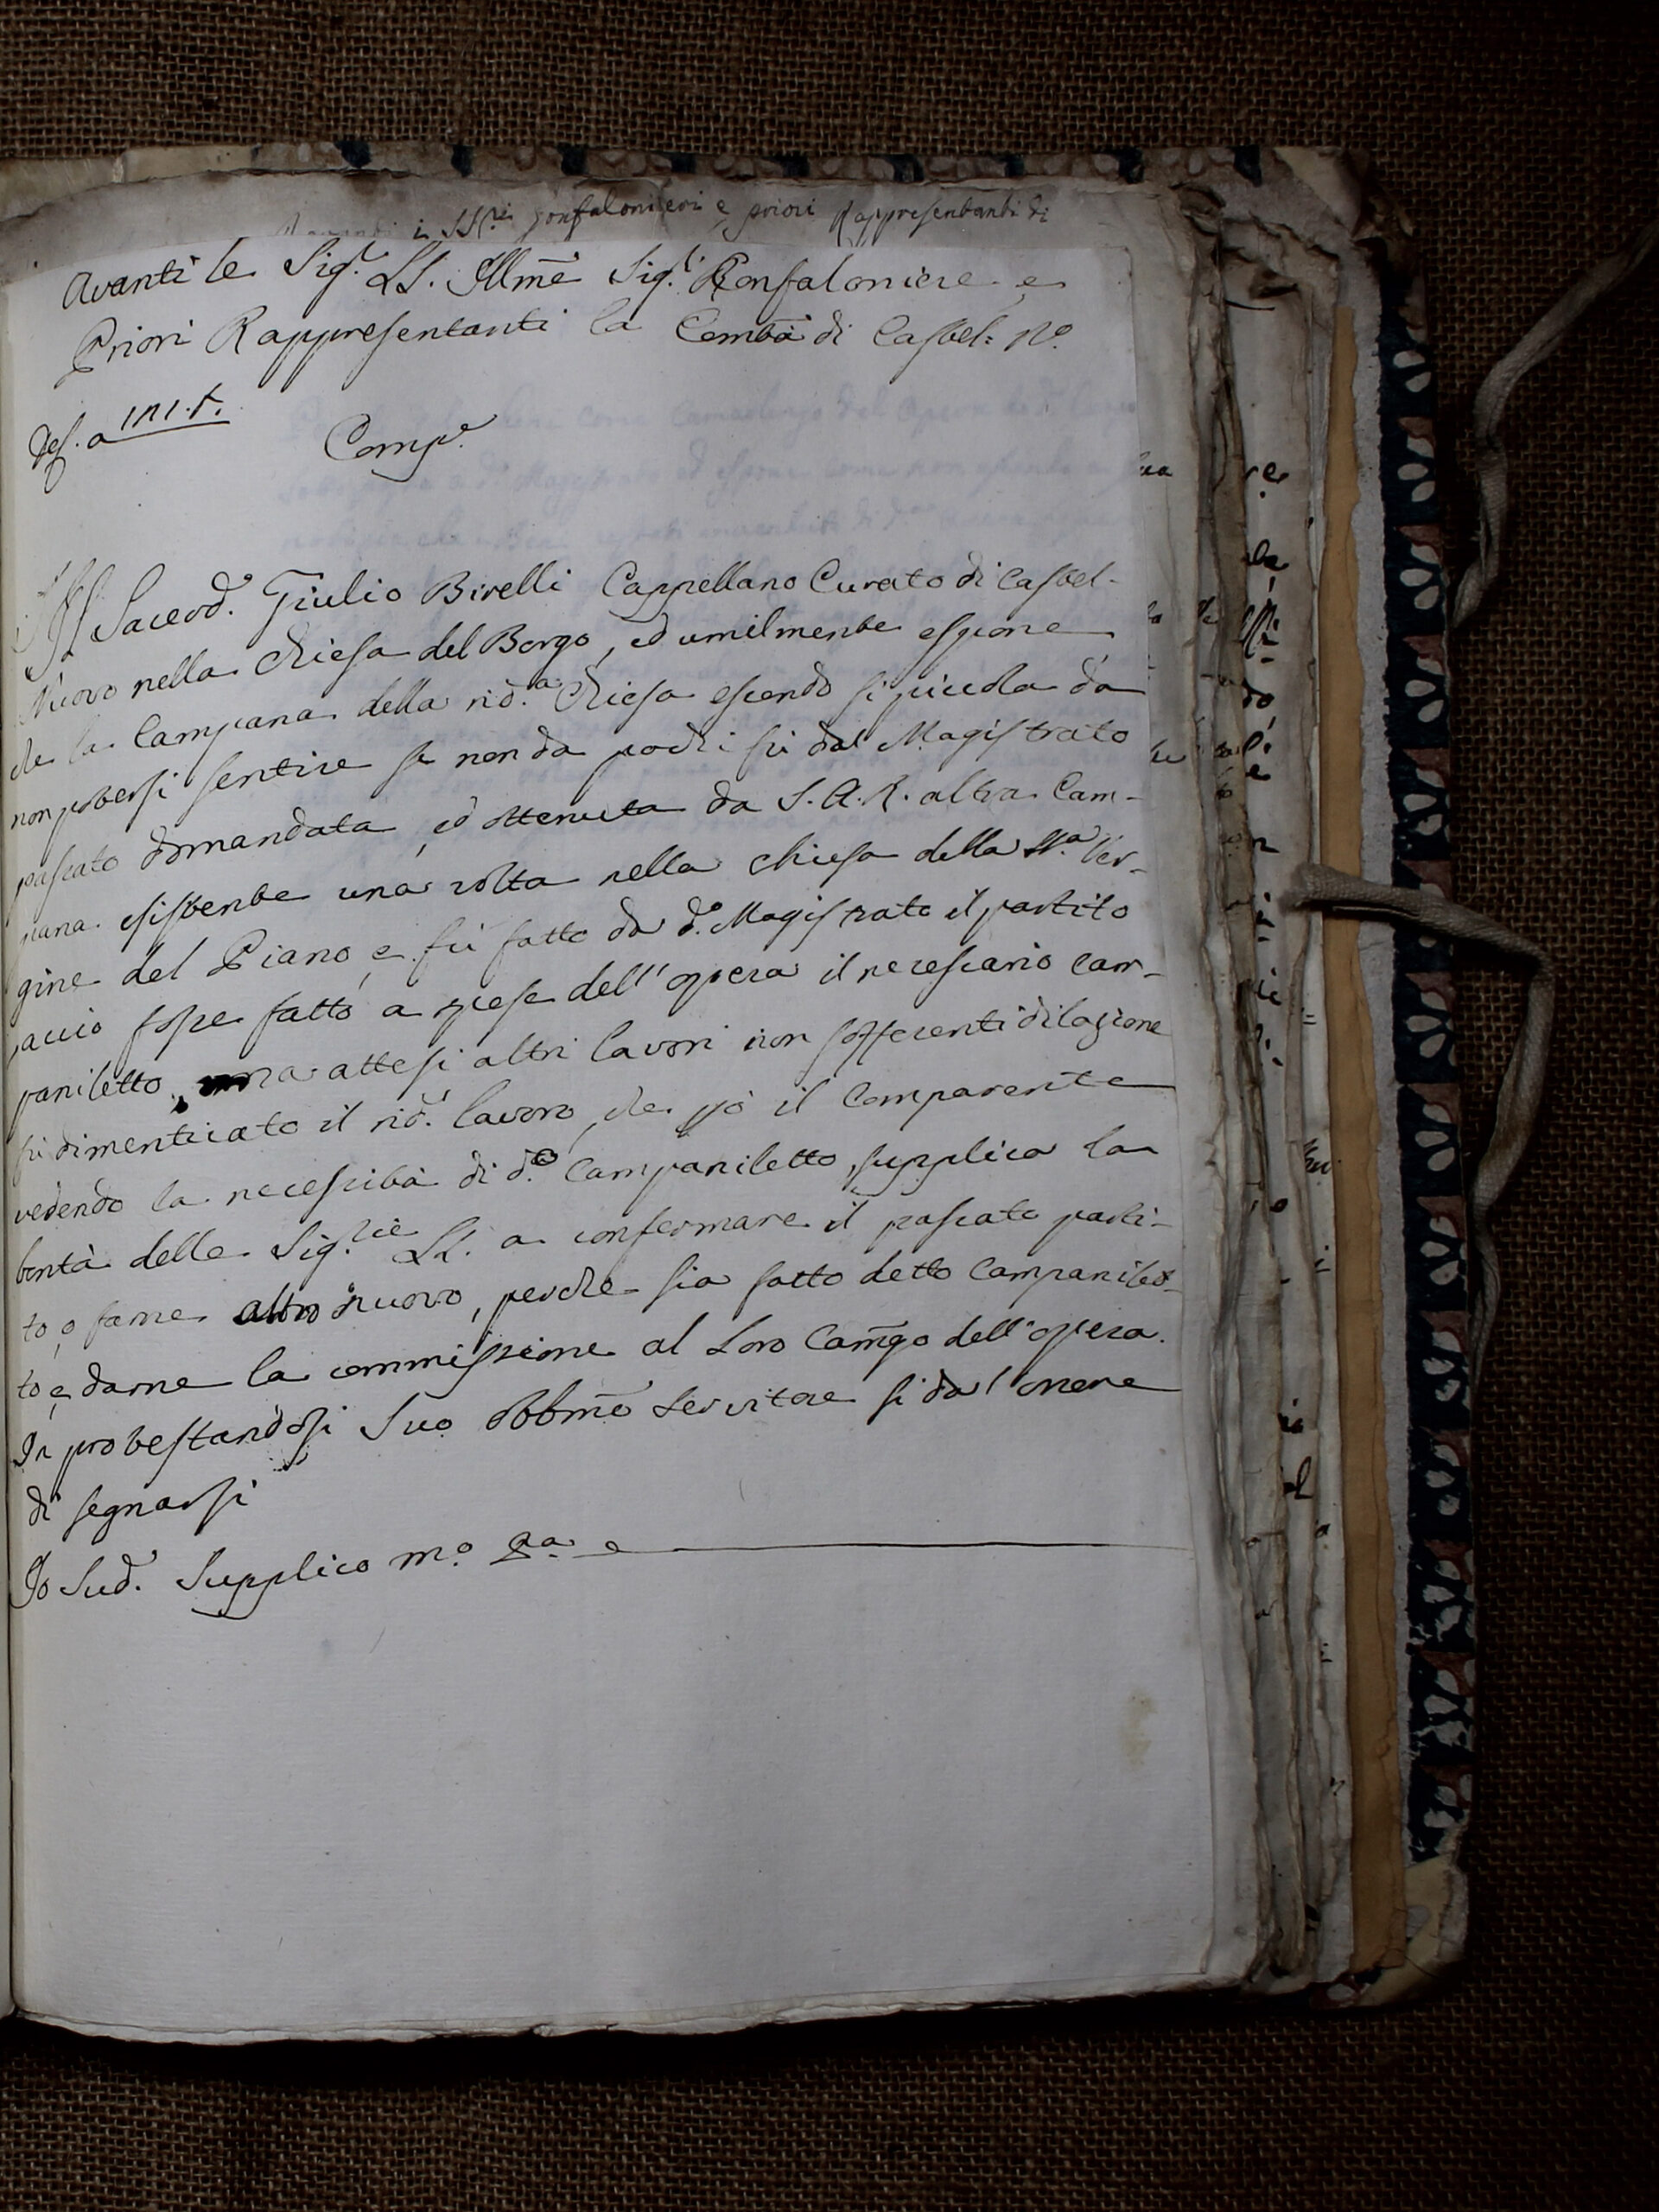 i SS.ri Gonfalonieri e priori Rappresentanti di
Avanti le Sig.e LL. Illme Sig.i Gonfaloniere e
Priori Rappresentanti la Comtà di Castel: N.o
Comp.e
Il Sacerd. Giulio Birelli Cappellano Curato di Castel-
Nuovo nella Chiesa del Borgo, ed umilmente espone
che la Campana della rid.a Chiesa essendo si piccola da
non potersi sentire se non da pochi fù dal Magistrato
passato domandata, ed ottenuta da S. A. R. altra Cam-
pana esistente una volta nella chiesa della SS.a Ver-
gine del Piano, e fù fatto da d.o Magistrato il partito
acciò fosse fatto a spese dell'opera il necessario Cam-
paniletto, ma attesi altri lavori non sofferenti dilazione
fù dimenticato il rid.o lavoro, che però il Comparente
vedendo la necessità di d.o Campaniletto, supplica la
bontà delle Sig.rie LL. a confermare il passato parti-
to, o farne altro nuovo, perche sia fatto detto Campanilet-
to, e darne la commissione al Loro Camgo dell'opera.
In protestandosi Suo Obbmo Servitore si da l'onore
di segnarsi
Io Sud.o Supplico m.o p.a e